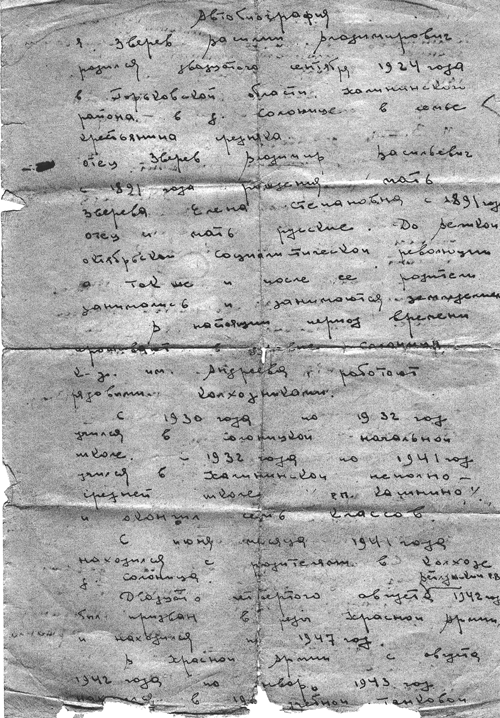 Автобиография
Я. Зверев Василий Владимирович
родился двадцатого сентября 1924 года
в Горьковской области Халининского
района в д. Солонище в семье
крестьянина середняка.
отец Зверев Владимир Васильевич
с 1891 года рождения мать
Зверева Елена Степановна с 1891 года
отец и мать русские. До великой
октябрьской социалистической революции
а так же и после ее родители
занимались и занимаются земледелием
В настоящий период времени
проживают в
к-з. им. Андреева работают
рядовыми колхозниками.
С 1930 года по 1932 год
учился в начальной
школе. с 1932 года по 1941 год
учился в неполно-
средней школе
и окончил семь классов.
С июня месяца 1941 года
находился с родителями в колхозе
д. Солоница.
Двадцать четвертого августа 1942 года
был призван в ряды Красной Армии,
и находился по 1947 год.
В Красной Армии с августа
1942 года по январь 1943 год
в танковой